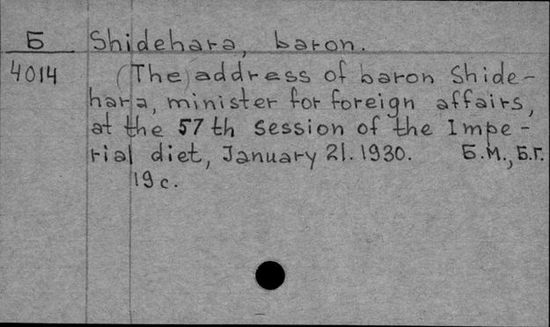 Б Shidehara, baron.
4014 (The) address of baron Shide-
hara, minister for foreign affairs,
at the 57th session of the Impe-
rial diet, January 21. 1930. Б.М., Б.Г.
19 c.